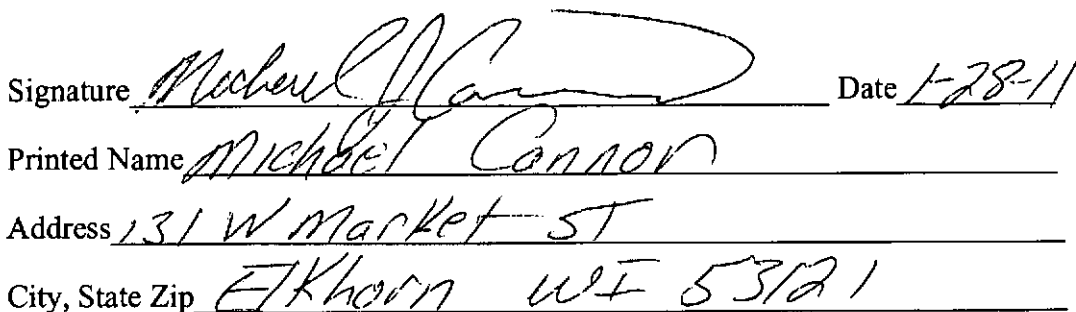 Signature Michael J Connor Date 1-28-11
Printed Name Michael Connor
Address 131 W Market ST
City, State Zip Elkhorn WI 53121